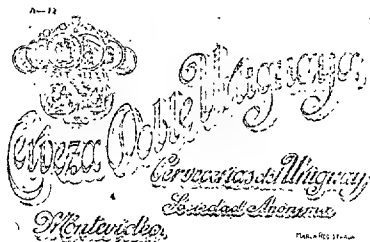 A-12
Cerveza Doble Uruguaya
Cervecerias del Uruguay
Sociedad Anónima
Montevideo
MARCA REGISTRADA